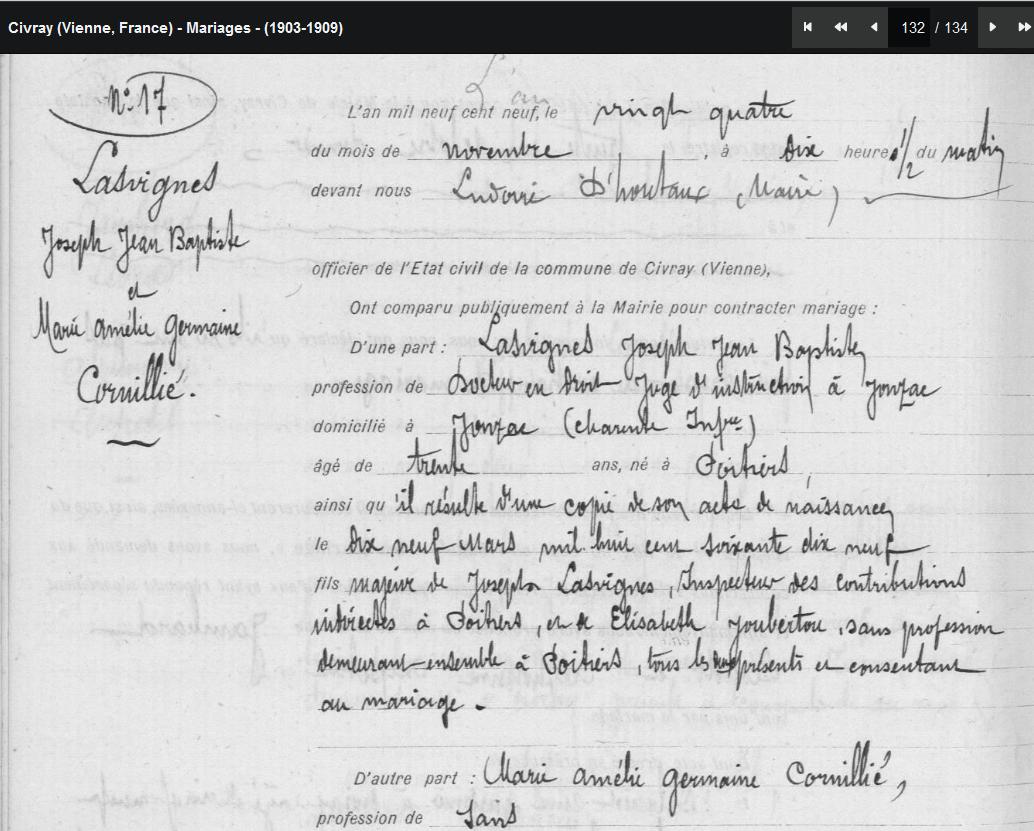 Civray (Vienne, France) - Mariages - (1903-1909)
132 / 134
N° 17
Lasvignes
Joseph Jean Baptiste
et
Marie Amélie Germaine
Cornillié.
L'an mil neuf cent neuf, le vingt quatre
du mois de novembre, à dix heures 1/2 du matin
devant nous Ludovic D'houtaux (Maire)
officier de l'Etat civil de la commune de Civray (Vienne),
Ont comparu publiquement à la Mairie pour contracter mariage :
D'une part : Lasvignes Joseph Jean Baptiste,
profession de Docteur en Droit Juge d'instruction à Jonzac
domicilié à Jonzac (Charente Infre)
âgé de trente ans, né à Poitiers,
ainsi qu'il résulte d'une copie de son acte de naissance,
le dix neuf Mars mil huit cent soixante dix neuf
fils majeur de Joseph Lasvignes, Inspecteur des contributions
indirectes à Poitiers, et de Elisabeth Joubertou, sans profession
demeurant ensemble à Poitiers, tous les présents et consentant
au mariage.
D'autre part : Marie Amélie Germaine Cornillié,
profession de Sans